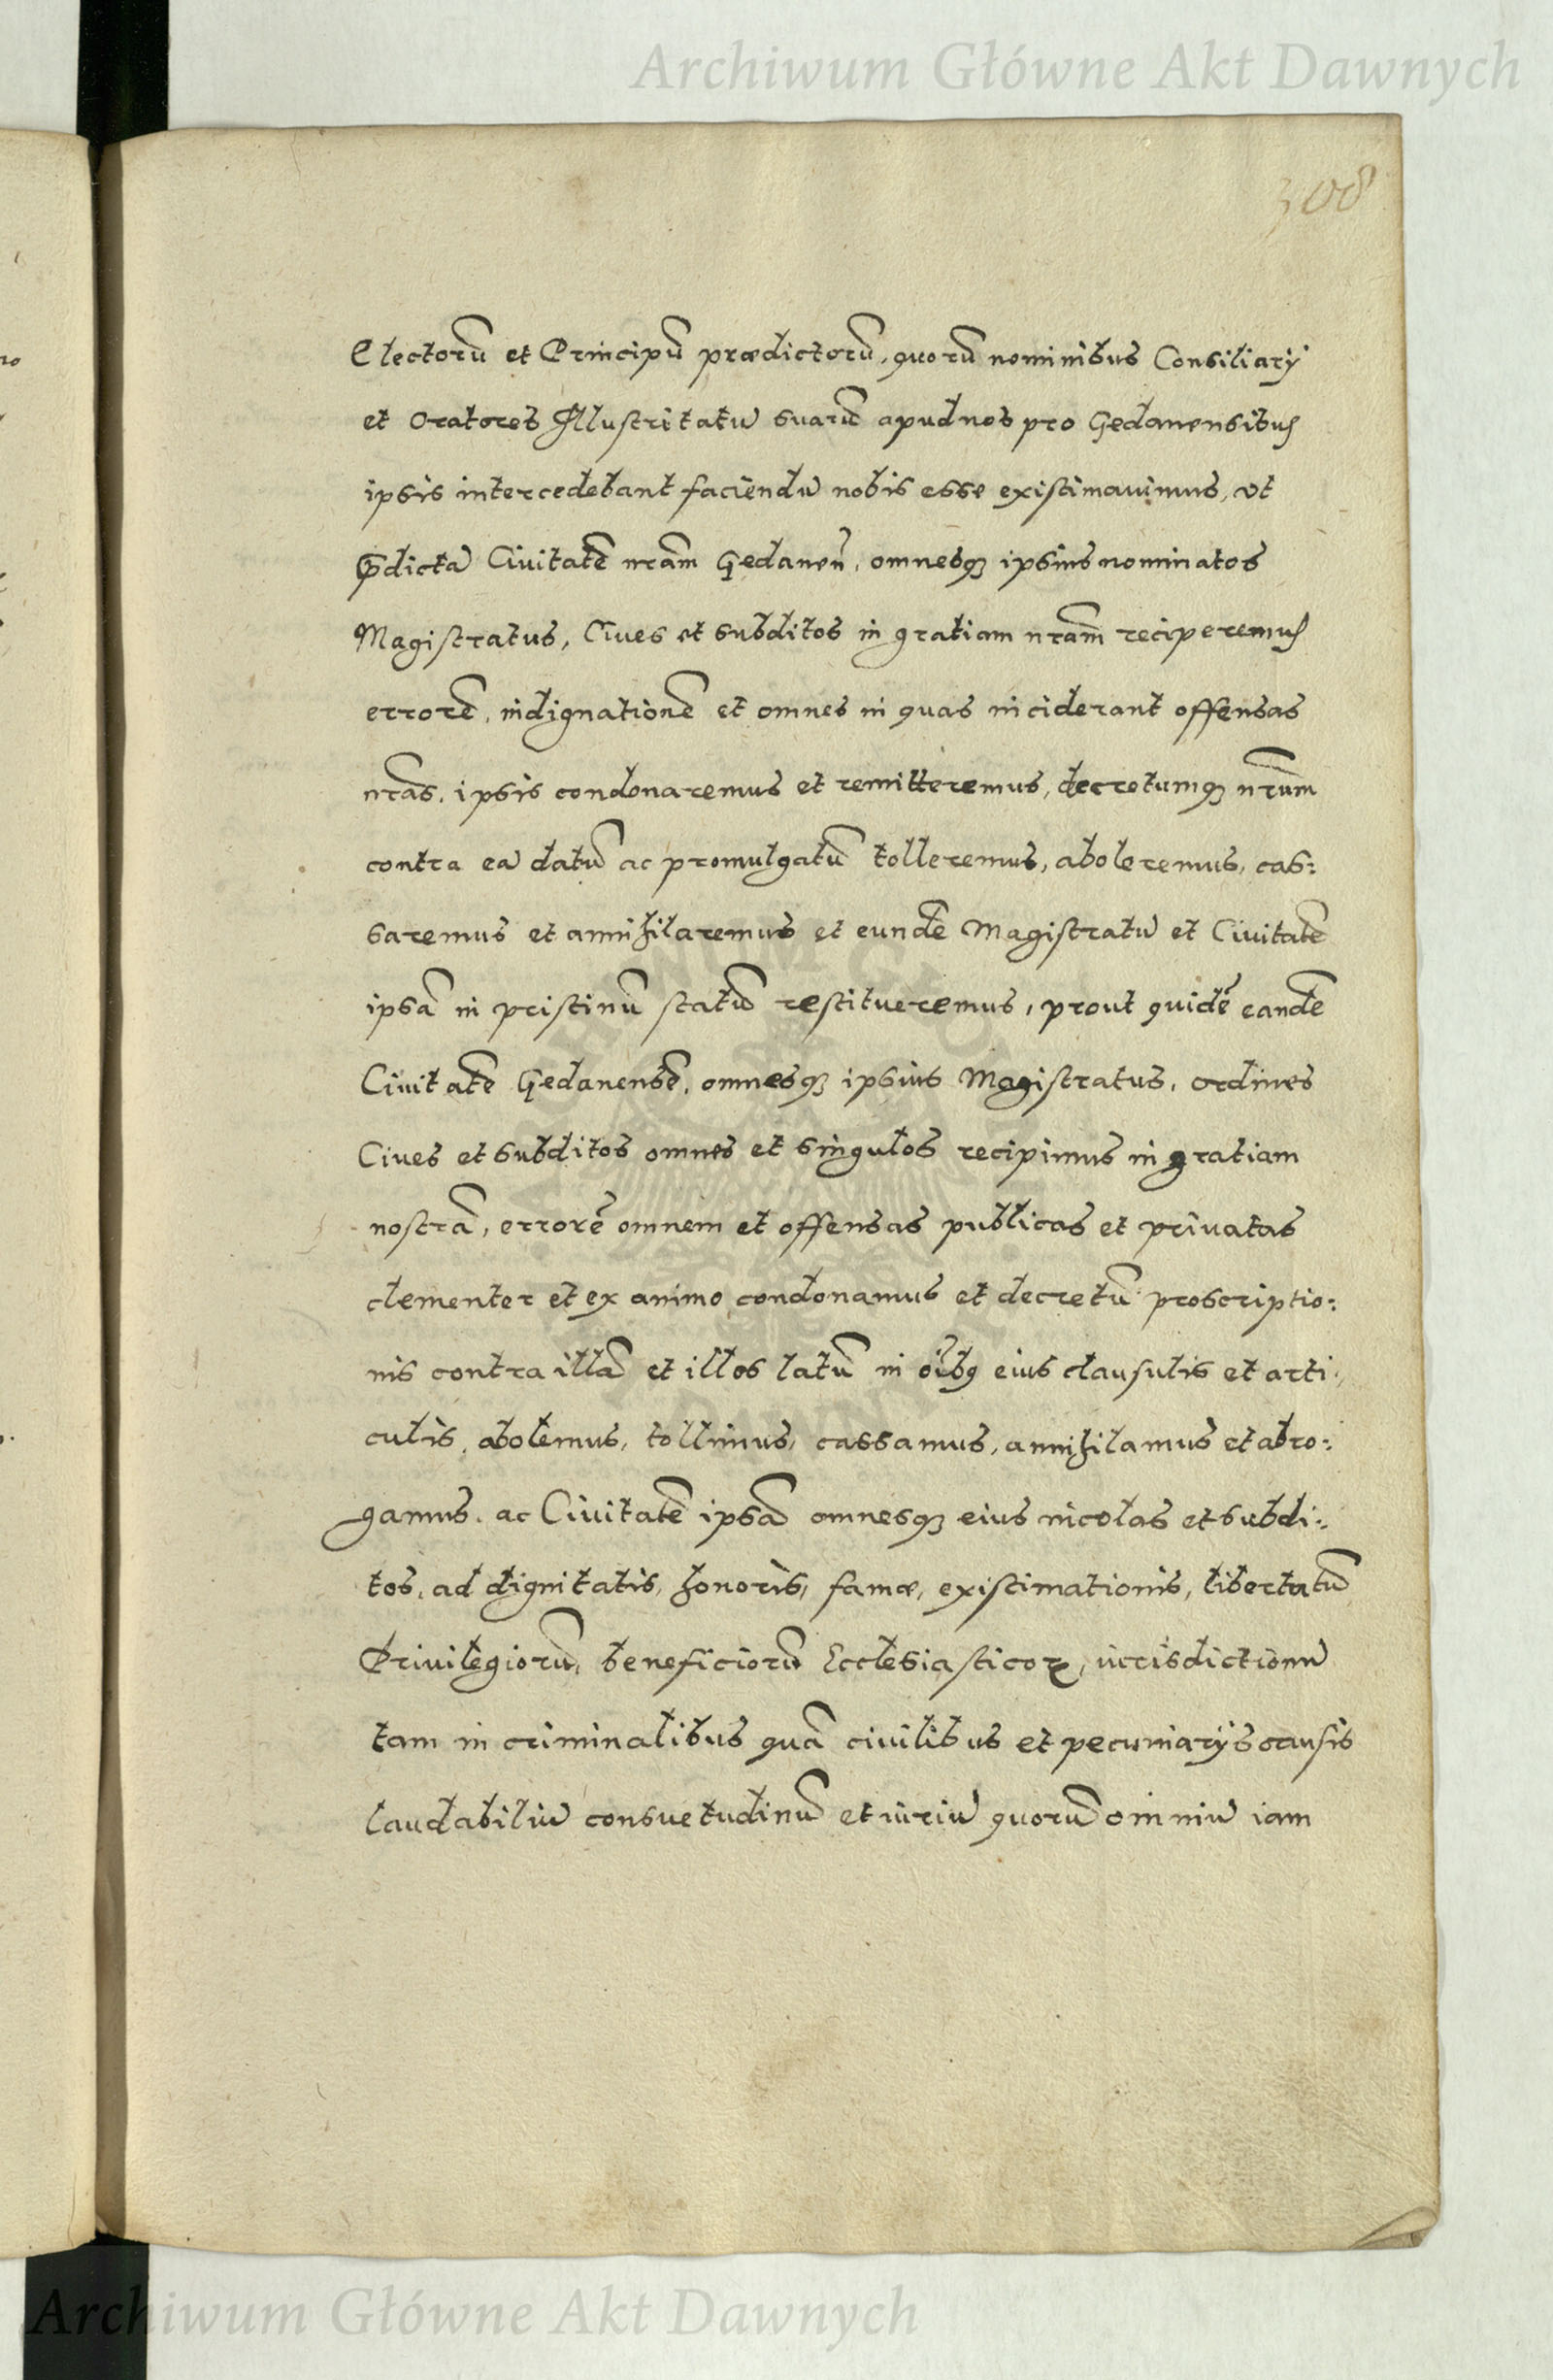 Archiwum Główne Akt Dawnych
308
Electorū et Principū prædictorū, quorū nominibus Consiliarÿ
et Oratores Illustritatū suarū apud nos pro Gedanensibus
ipsis intercedebant faciendū nobis esse existimauimus, vt
Prdictā Ciuitatē nrām Gedanen̄, omnesqȝ ipsius nominatos
Magistratus, Ciues et subditos in gratiam nrām reciperemus
errorē, indignationē et omnes in quas inciderant offensas
nrās, ipsis condonaremus et remitteremus, decretumqȝ nrūm
contra eā datū ac promulgatū tolleremus, aboleremus, cas:
saremus et annihilaremus et eundē Magistratū et Ciuitatē
ipsā in pristinū statū restitueremus, prout quidē eandē
Ciuitatē Gedanensē, omnesqȝ ipsius Magistratus, ordines
Ciues et subditos omnes et singulos recipimus in gratiam
nostrā, errorē omnem et offensas publicas et priuatas
clementer et ex animo condonamus et decretū proscriptio:
nis contra illā et illos latū in oībꝯ eius clausulis et arti:
culis, abolemus, tollimus, cassamus, annihilamus et abro:
gamus, ac Ciuitatē ipsā omnesqȝ eius incolas et subdi:
tos, ad dignitatis, honoris, famæ, existimationis, libertatū
Priuilegiorū, beneficiorū Ecclesiasticoꝝ, iurisdictionū
tam in criminalibus quā ciuilibus et pecuniarÿs causis
laudabiliū consuetudinū et iuriū quorū omniū iam
Archiwum Główne Akt Dawnych